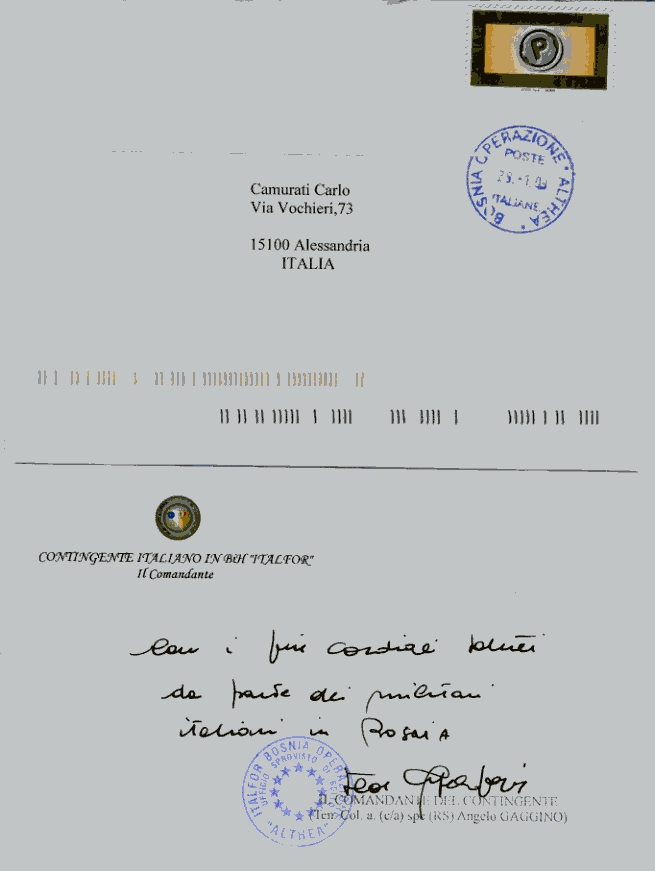 P
BOSNIA OPERAZIONE * ALTHEA *
POSTE
29.-1.0
ITALIANE
Camurati Carlo
Via Vochieri,73
15100 Alessandria
ITALIA
CONTINGENTE ITALIANO IN BiH "ITALFOR"
Il Comandante
Con i più cordiali saluti
da parte dei militari
italiani in Bosnia
ITALFOR BOSNIA OPER
UFFICIO SPROVISTO DI
"ALTHEA"
IL COMANDANTE DEL CONTINGENTE
(Ten. Col. a. (c/a) spe (RS) Angelo GAGGINO)